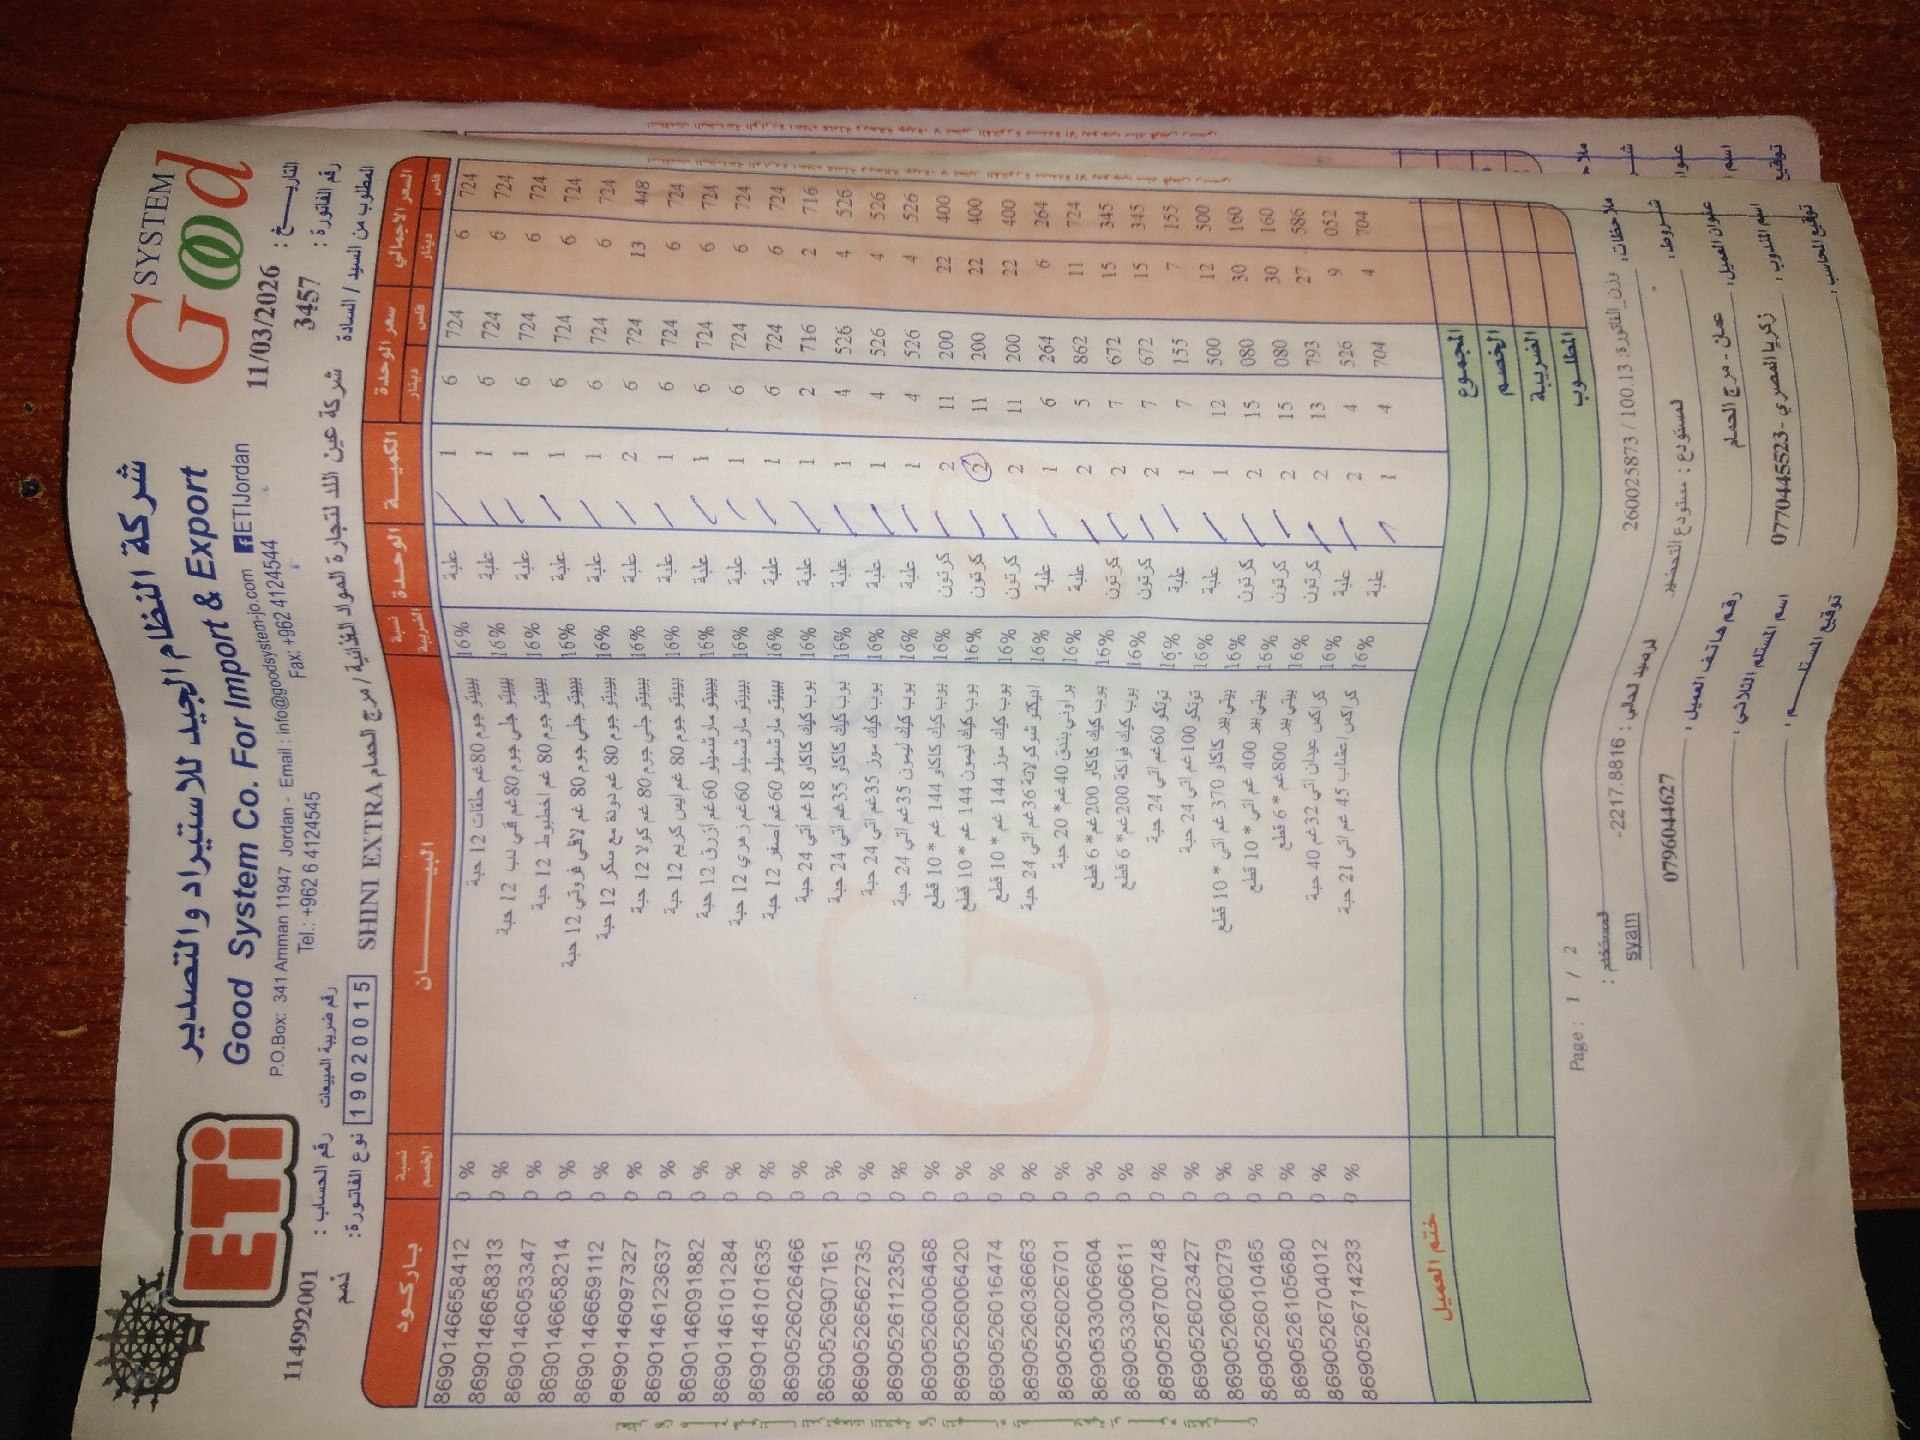 شركة النظام الجيد للاستيراد والتصدير
Good System Co. For Import & Export
P.O.Box: 341 Amman 11947 Jordan - Email : info@goodsystem-jo.com ETIJordan
Tel.: +962 6 4124545 Fax: +962 6 4124544
ETi
Good SYSTEM
التاريخ : 11/03/2026
رقم الفاتورة : 3457
رقم الحساب : 114992001
رقم ضريبة المبيعات 19020015
نوع الفاتورة: ذمم
المطلوب من السيد / السادة شركة عين اللد لتجارة المواد الغذائية / مرج الحمام SHINI EXTRA
باركود نسبة الخصم البيــــان نسبة الضريبة الوحدة الكميــة سعر الوحدة دينار فلس السعر الاجمالي دينار فلس
8690146658412 0 % بيبيتو جوم 80غم حلقات 12 حبة 16% علبة 1 6 724 6 724
8690146658313 0 % بيبيتو جلي جوم 80غم فني دب 12 حبة 16% علبة 1 6 724 6 724
8690146053347 0 % بيبيتو جوم 80 غم اخطبوط 12 حبة 16% علبة 1 6 724 6 724
8690146658214 0 % بيبيتو جلي جوم 80 غم لافلي فروتي 12 حبة 16% علبة 1 6 724 6 724
8690146659112 0 % بيبيتو جوم 80 غم دودة مع سكر 12 حبة 16% علبة 1 6 724 6 724
8690146097327 0 % بيبيتو جلي جوم 80 غم كولا 12 حبة 16% علبة 2 6 724 13 448
8690146123637 0 % بيبيتو جوم 80 غم ايس كريم 12 حبة 16% علبة 1 6 724 6 724
8690146091882 0 % بيبيتو مارشميلو 60غم أزرق 12 حبة 16% علبة 1 6 724 6 724
8690146101284 0 % بيبيتو مارشميلو 60غم زهري 12 حبة 16% علبة 1 6 724 6 724
8690146101635 0 % بيبيتو مارشميلو 60غم أصفر 12 حبة 16% علبة 1 6 724 6 724
8690526026466 0 % بوب كيك كاكاو 18غم اتي 24 حبة 16% علبة 1 2 716 2 716
8690526907161 0 % بوب كيك كاكاو 35غم اتي 24 حبة 16% علبة 1 4 526 4 526
8690526562735 0 % بوب كيك موز 35غم اتي 24 حبة 16% علبة 1 4 526 4 526
8690526112350 0 % بوب كيك ليمون 35غم اتي 24 حبة 16% علبة 1 4 526 4 526
8690526006468 0 % بوب كيك كاكاو 144 غم * 10 قطع 16% كرتون 2 11 200 22 400
8690526006420 0 % بوب كيك ليمون 144 غم * 10 قطع 16% كرتون 2 11 200 22 400
8690526016474 0 % بوب كيك موز 144 غم * 10 قطع 16% كرتون 2 11 200 22 400
8690526036663 0 % شوكولاتة 36غم اتي 24 حبة 16% علبة 1 6 264 6 264
8690526026701 0 % براوني بندق 40غم* 20 حبة 16% علبة 2 5 862 11 724
8690533006604 0 % بوب كيك كاكاو 200غم* 6 قطع 16% كرتون 2 7 672 15 345
8690533006611 0 % بوب كيك فراكة 200غم* 6 قطع 16% كرتون 2 7 672 15 345
8690526700748 0 % توتكو 60غم اتي 24 حبة 16% علبة 1 7 155 7 155
8690526023427 0 % توتكو 100غم اتي 24 حبة 16% علبة 1 12 500 12 500
8690526060279 0 % بيتي بير كاكاو 370 غم اتي * 10 قطع 16% كرتون 2 15 080 30 160
8690526010465 0 % بيتي بير 400 غم اتي * 10 قطع 16% كرتون 2 15 080 30 160
8690526105680 0 % بيتي بير 800غم * 6 قطع 16% كرتون 2 13 793 27 586
8690526704012 0 % كراكس عيدان اتي 32غم 40 حبة 16% علبة 2 4 526 9 052
8690526714233 0 % كراكس اعشاب 45 غم اتي 21 حبة 16% علبة 1 4 704 4 704
ختم العميل
المجموع
الخصم
الضريبة
المطلوب
Page : 1 / 2
ملاحظات: وزن_الفاتورة: 100.13 / 260025873
المستخدم : syam
شروط: لمستودع : مستودع التحضير لرصيد لحالي : 2217.8816-
عنوان العميل: عمان - مرج الحمام رقم هاتف العميل: 0796044627
اسم المندوب: زكريا المصري - 0770445523 اسم المستلم الثلاثي:
توقيع المحاسب: توقيع المستلــم :